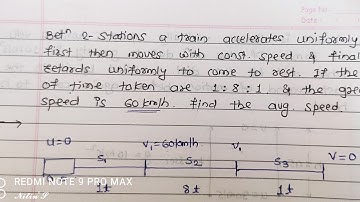 Page No.
Date
Betⁿ 2-Stations a train accelerates uniformly
first then moves with const. speed & final
retards uniformly to come to rest. If the
of time taken are 1:8:1 & the gre
speed is 60 km/h. find the avg speed.
u=0 V₁=60km/h V₁ V=0
S₁ S₂ S₃
1t 8t 1t
REDMI NOTE 9 PRO MAX